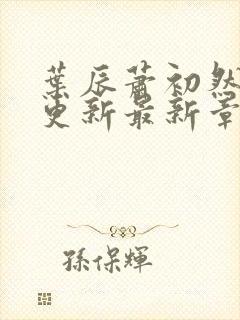 葉辰蕭初然
更新最新章
孫保輝